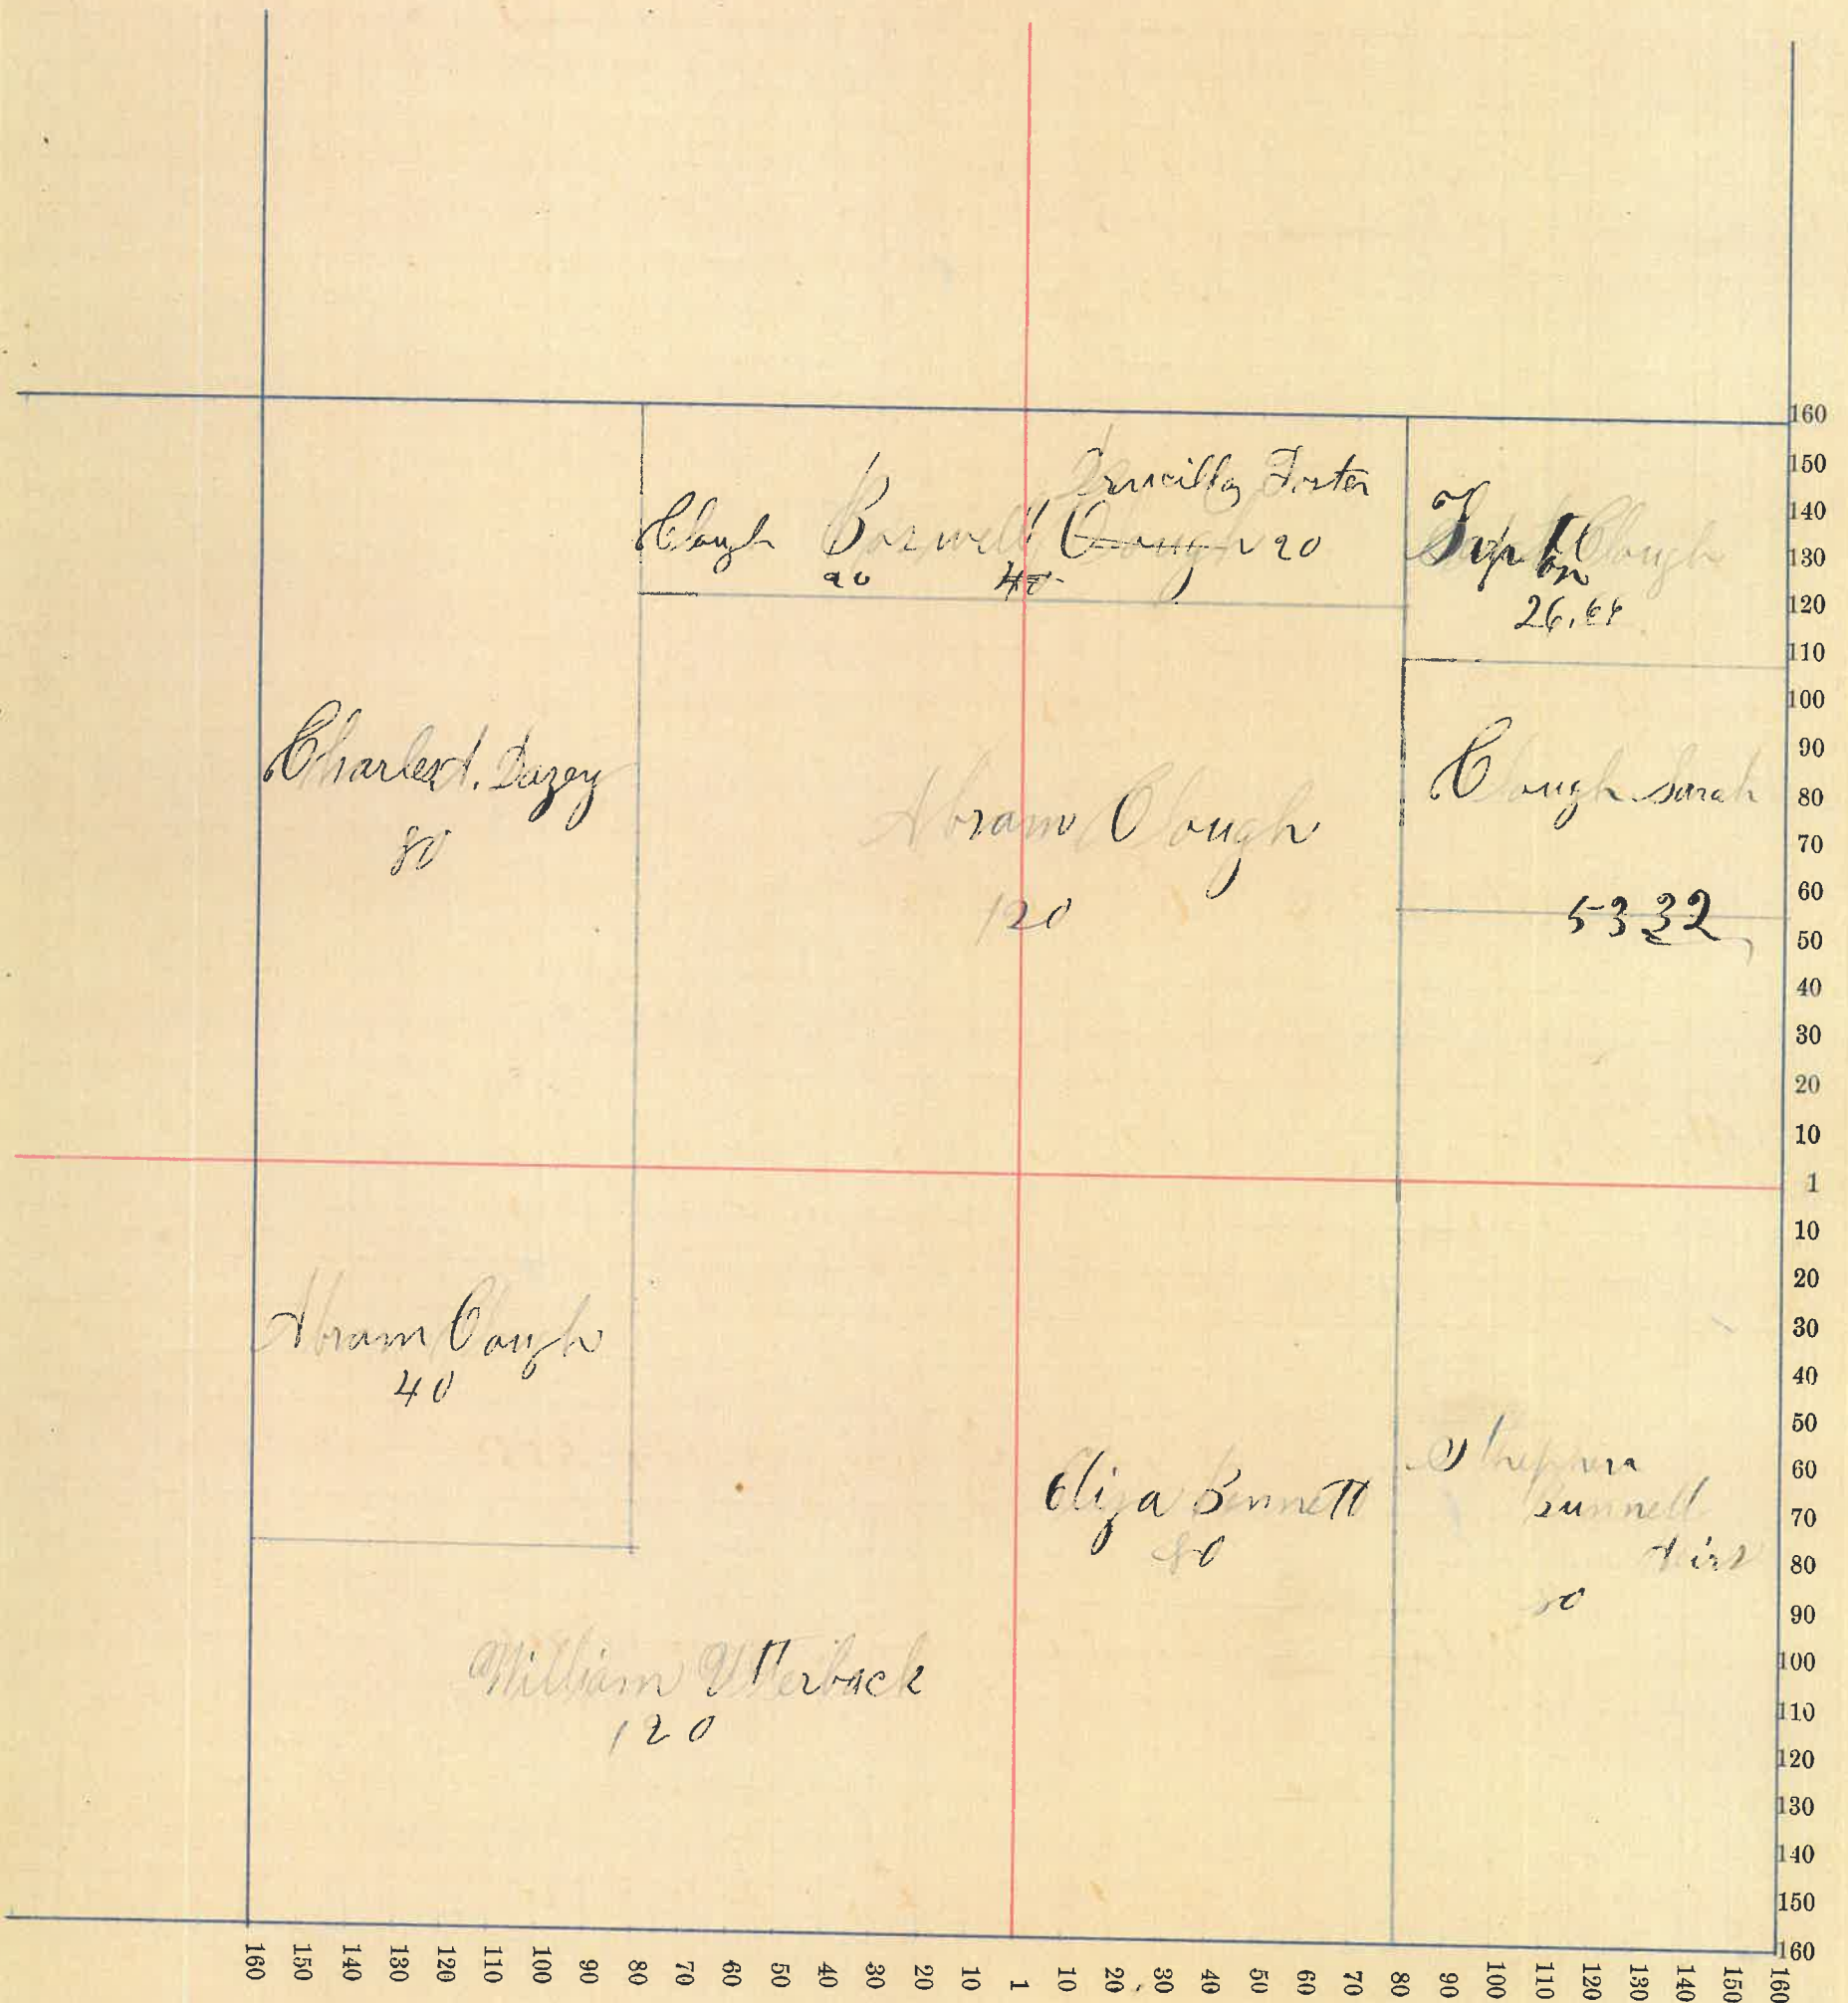 Drucilla Foster
Clough Boswell Clough 20
20 40
Clough
26.64
Charles A. Dazey
80
Clough Sarah
53 32
Abram Clough
120
Abram Clough
40
Eliza Bennett
80
Bunnell
80
William Utterback
120
160
150
140
130
120
110
100
90
80
70
60
50
40
30
20
10
1
10
20
30
40
50
60
70
80
90
100
110
120
130
140
150
160
160 150 140 130 120 110 100 90 80 70 60 50 40 30 20 10 1 10 20 30 40 50 60 70 80 90 100 110 120 130 140 150 160